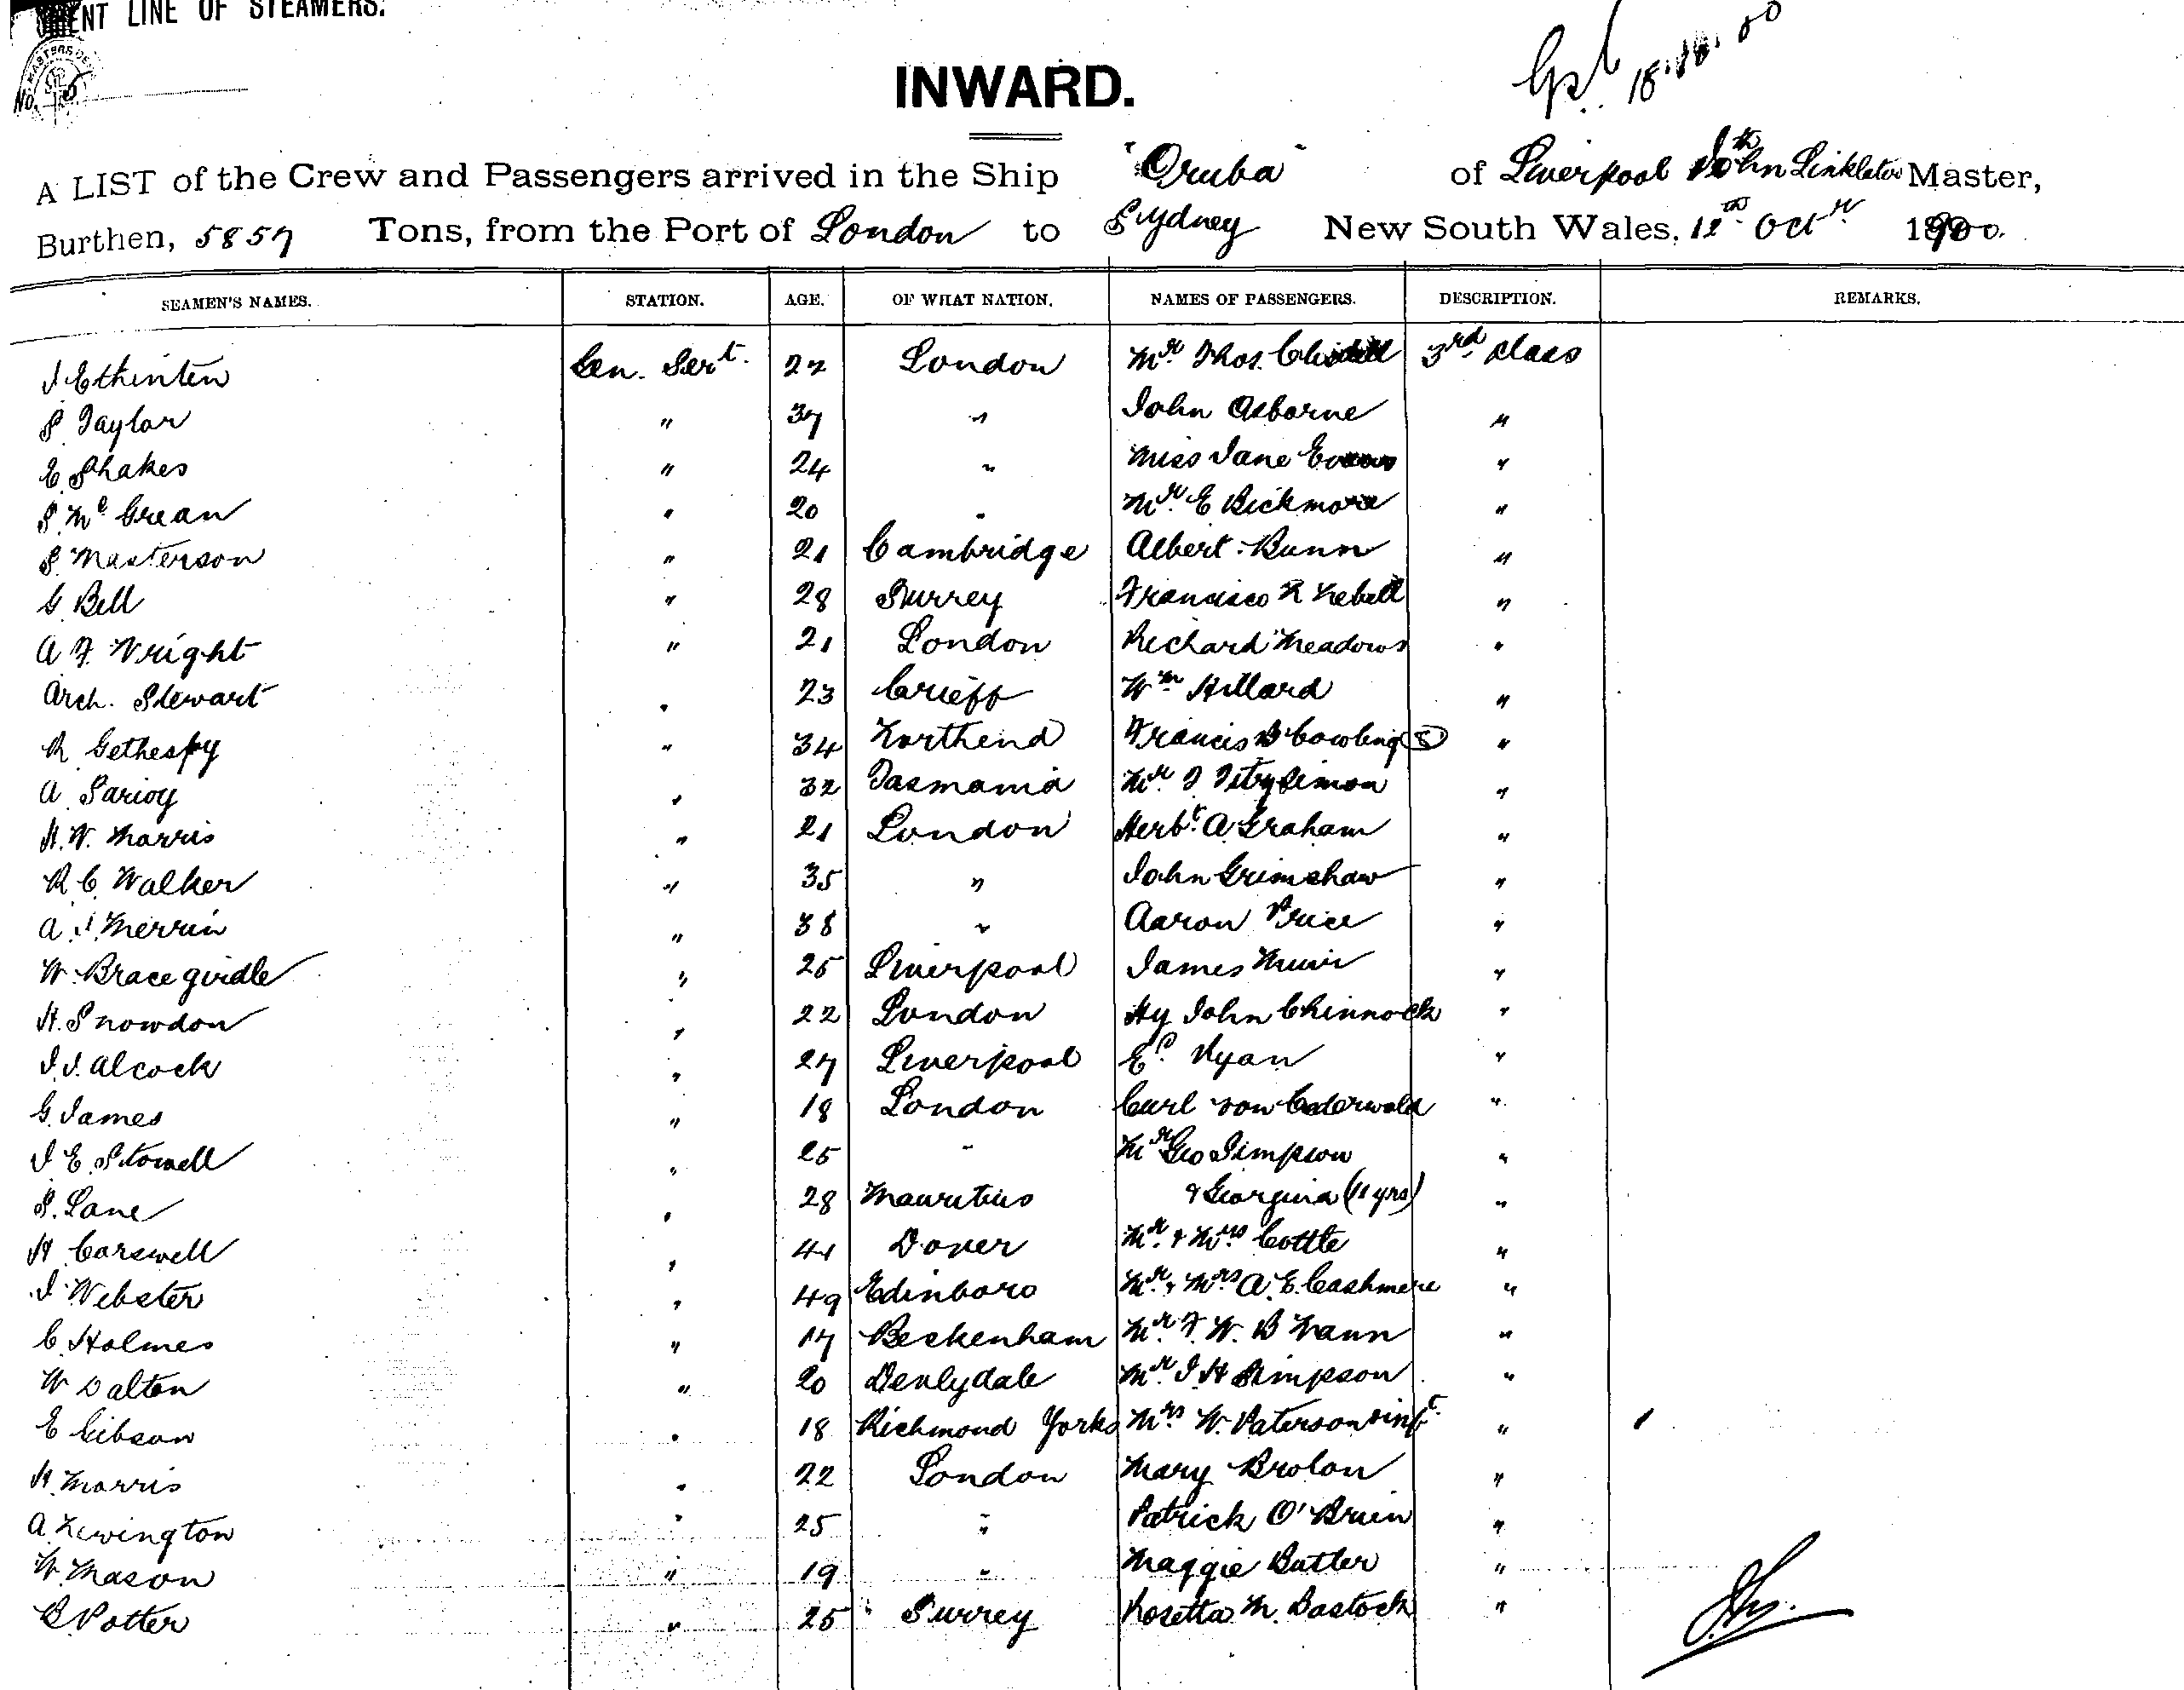 ENT LINE OF STEAMERS.
No. 5
INWARD.
A LIST of the Crew and Passengers arrived in the Ship "Oruba" of Liverpool Jno Linkleter Master,
Burthen, 5857 Tons, from the Port of London to Sydney New South Wales, 12th Octr 1900.
SEAMEN'S NAMES. STATION. AGE. OF WHAT NATION. NAMES OF PASSENGERS. DESCRIPTION. REMARKS.
J Ethinten Gen. Sert. 22 London Mr Thos. 3rd class
S Taylor " 37 " John Osborne "
E. Shakes " 24 " Miss Jane Evans "
S. Mc Grean " 20 " Mr E Bickmore "
S. Masterson " 21 Cambridge Albert Bunn "
G. Bell " 28 Surrey Francisco R Nebell "
A F. Wright " 21 London Richard Meadows "
Arch. Stewart " 23 Crieff Wm Hillard "
R Gethespy " 34 Northend Francis B Cowling "
A. " 32 Tasmania Mr "
H. W. Morris " 21 London Herbt. A Graham "
R C Walker " 35 " John Grimshaw "
A. J. Merrin " 38 " Aaron Price "
W. Bracegirdle " 25 Liverpool James Muir "
H. Snowdon " 22 London Hy John Chinnock "
J. J. Alcock " 27 Liverpool Ed. Ryan "
G. James " 18 London Carl von Cederwald "
J E. Stowell " 25 " Mr Geo Simpson "
S. Lane " 28 Mauritius & Georgina (11 yrs) "
H Carswell " 41 Dover Mr. & Mrs Cottle "
J Webster " 49 Edinboro Mr. & Mrs. A. E. Cashmere "
C. Holmes " 17 Beckenham Mr. F. W. B Nann "
W Dalton " 20 Denlydale Mr. J H Simpson "
E Gibson " 18 Richmond Yorks Mrs W. Paterson & inft. "
H. Morris " 22 London Mary Brolan "
A. Newington " 25 " Patrick O'Brien "
W. Mason " 19 " Maggie Butler "
B. Potter " 25 Surrey Rosetta M. Bastock "